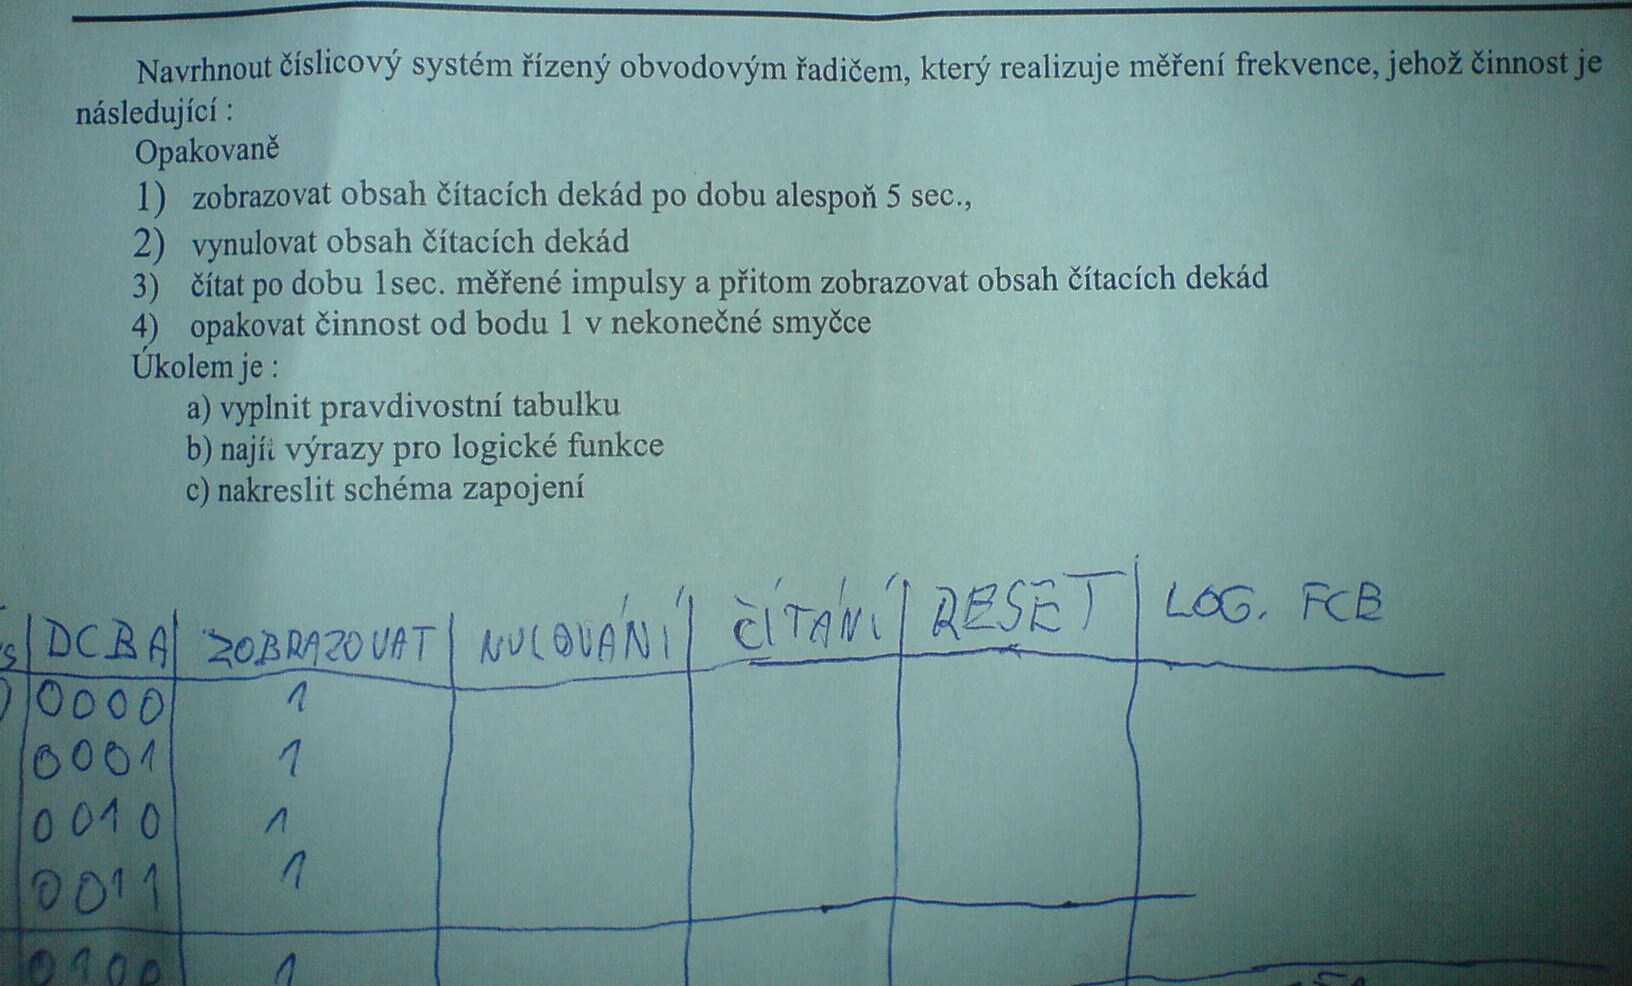 Navrhnout číslicový systém řízený obvodovým řadičem, který realizuje měření frekvence, jehož činnost je
následující :
Opakovaně
1) zobrazovat obsah čítacích dekád po dobu alespoň 5 sec.,
2) vynulovat obsah čítacích dekád
3) čítat po dobu 1sec. měřené impulsy a přitom zobrazovat obsah čítacích dekád
4) opakovat činnost od bodu 1 v nekonečné smyčce
Úkolem je :
a) vyplnit pravdivostní tabulku
b) najít výrazy pro logické funkce
c) nakreslit schéma zapojení
DCBA ZOBRAZOVAT NULOVÁNÍ ČÍTÁNÍ RESET LOG. FCE
0000 1
0001 1
0010 1
0011 1
0100 1